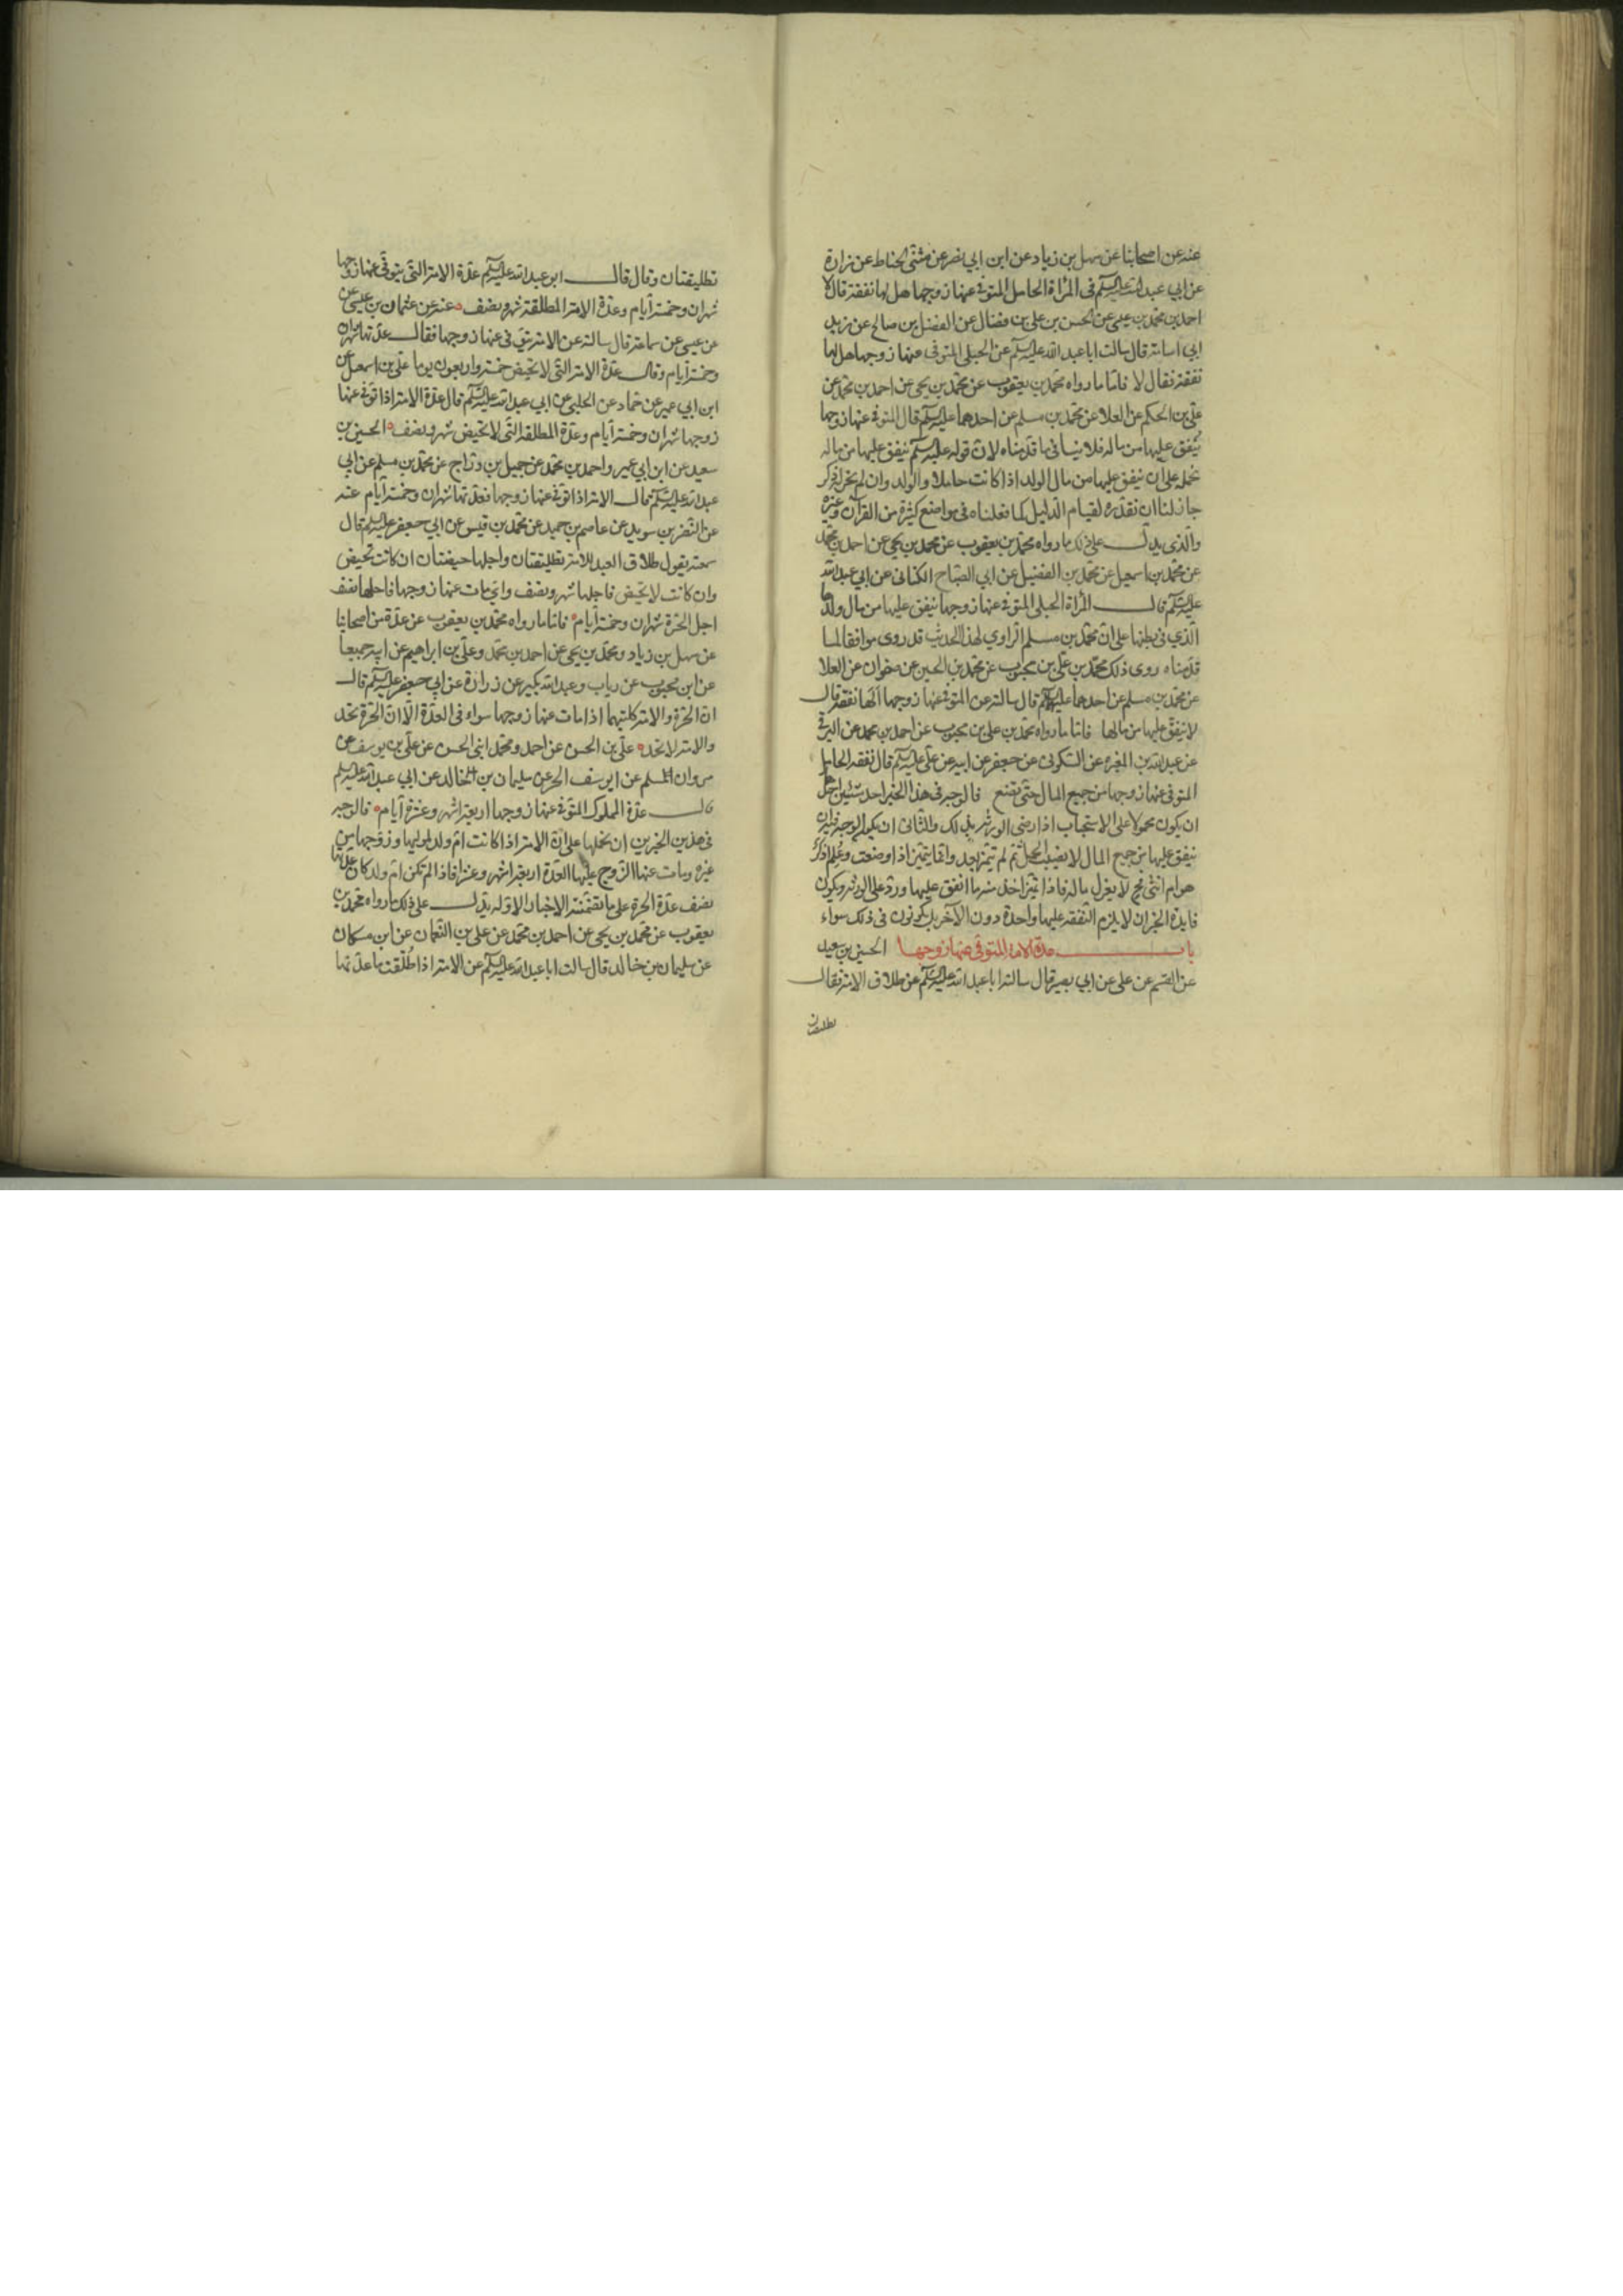 عنه عن اصحابنا عن سهل بن زياد عن ابن ابي نصر عن مثنى الحناط عن زرارة
عن ابي عبد الله عليه السلم في المراة الحامل المتوفي عنها زوجها هل لها نفقة قال لا
احمد بن محمد بن عيسى عن الحسن بن علي بن فضال عن المفضل بن صالح عن زيد
ابي اسامة قال سالت ابا عبد الله عليه السلم عن الحبلى المتوفى عنها زوجها هل لها
نفقة فقال لا فاما ما رواه محمد بن يعقوب عن محمد بن يحيى عن احمد بن محمد عن
علي بن الحكم عن العلا عن محمد بن مسلم عن احدهما عليه السلم قال المتوفي عنها زوجها
ينفق عليها من ماله فلا ينافي ما قدمناه لان قوله عليه السلم ينفق عليها من ماله
نحمله على ان ينفق عليها من مال الولد اذا كانت حاملا والولد وان لم يجر له ذكر
جاز لنا ان نقدره لقيام الدليل كما فعلناه في مواضع كثيرة من القرآن وغيره
والذي يدل على ذلك ما رواه محمد بن يعقوب عن محمد بن يحيى عن احمد بن محمد
عن محمد بن اسمعيل عن محمد بن الفضيل عن ابي الصباح الكناني عن ابي عبد الله
عليه السلم قال المراة الحبلى المتوفي عنها زوجها ينفق عليها من مال ولدها
الذي في بطنها على ان محمد بن مسلم الراوي لهذا الحديث قد روى موافقا لما
قدمناه روى ذلك محمد بن علي بن محبوب عن محمد بن الحسين عن صفوان عن العلا
عن محمد بن مسلم عن احدهما عليهما السلم قال سالته عن المتوفي عنها زوجها الها نفقة قال
لا ينفق عليها من مالها فاما ما رواه محمد بن علي بن محبوب عن احمد بن محمد عن البرقي
عن عبد الله بن المغيره عن السكوني عن جعفر عن ابيه عن علي عليه السلم قال نفقة الحامل
المتوفى عنها زوجها من جميع المال حتى تضع فالوجه في هذا الخبر احد شيئين احدهما
ان يكون محمولا على الاستحباب اذا رضى الورثة بذلك والثاني ان يكون الوجه فيه ان
ينفق عليها من جميع المال لان نصيب الحمل لم يتميز بعد وانما يتميز اذا وضعت وعلم اذكر
هو ام انثى فح لا يعزل ماله فاذا تميز اخذ منه ما انفق عليها ورد على الورثة ويكون
فايدة الخبر ان لا يلزم النفقة عليها واحدة دون الآخر بل يكونون في ذلك سواء
باب عدة الامة المتوفى عنها زوجها الحسين بن سعيد
عن القسم عن علي عن ابي بصير قال سالت ابا عبد الله عليه السلم عن طلاق الامة فقال
تطليقتان
تطليقتان وقال قال ابو عبد الله عليه السلم عدة الامة التي يتوفى عنها زوجها
شهران وخمسة أيام وعدة الامة المطلقة شهر ونصف عنه عن عثمان بن عيسى عن
عن عيسى عن سماعة قال سالته عن الامة يتوفى عنها زوجها فقال عدتها شهران
وخمسة أيام وقال عدة الامة التي لا تحيض خمسة واربعون يوما علي بن اسمعيل عن
ابن ابي عمير عن حماد عن الحلبي عن ابي عبد الله عليه السلم قال عدة الامة اذا توفي عنها
زوجها شهران وخمسة أيام وعدة المطلقة التي لا تحيض شهر ونصف الحسين بن
سعيد عن ابن ابي عمير واحمد بن محمد عن جميل بن دراج عن محمد بن مسلم عن ابي
عبد الله عليه السلم قال الامة اذا توفي عنها زوجها فعدتها شهران وخمسة أيام عنه
عن النضر بن سويد عن عاصم بن حميد عن محمد بن قيس عن ابي جعفر عليه السلم قال
سمعته يقول طلاق العبد للامة تطليقتان واجلها حيضتان ان كانت تحيض
وان كانت لا تحيض فاجلها شهر ونصف واي مات عنها زوجها فاجلها نصف
اجل الحرة شهران وخمسة أيام فاما ما رواه محمد بن يعقوب عن عدة من اصحابنا
عن سهل بن زياد ومحمد بن يحيى عن احمد بن محمد وعلي بن ابراهيم عن ابيه جميعا
عن ابن محبوب عن رياب وعبد الله بكير عن زرارة عن ابي جعفر عليه السلم قال
ان الحرة والامة كلتيهما اذا مات عنها زوجها سواء في العدة الا ان الحرة تحد
والامة لا تحد علي بن الحسن عن احمد ومحمد ابني الحسن عن علي بن يوسف عن
مروان المسلم عن ايوسف الحر عن سليمان بن الخالد عن ابي عبد الله عليه السلم
قال عدة المملوك المتوفي عنها زوجها اربعة اشهر وعشرة أيام فالوجه
في هذين الخبرين ان نحملها على ان الامة اذا كانت ام ولد لموليها وزوجها من
غيره ومات عنها الزوج عليها العدة اربعة اشهر وعشرا فاذا لم تكن ام ولد كان عليها
نصف عدة الحرة على ما تضمنته الاخبار الاوله يدل على ذلك ما رواه محمد بن
يعقوب عن محمد بن يحيى عن احمد بن محمد عن علي بن النعمان عن ابن مسكان
عن سليمان بن خالد قال سالت ابا عبد الله عليه السلم عن الامة اذا طُلّقت ما عدتها